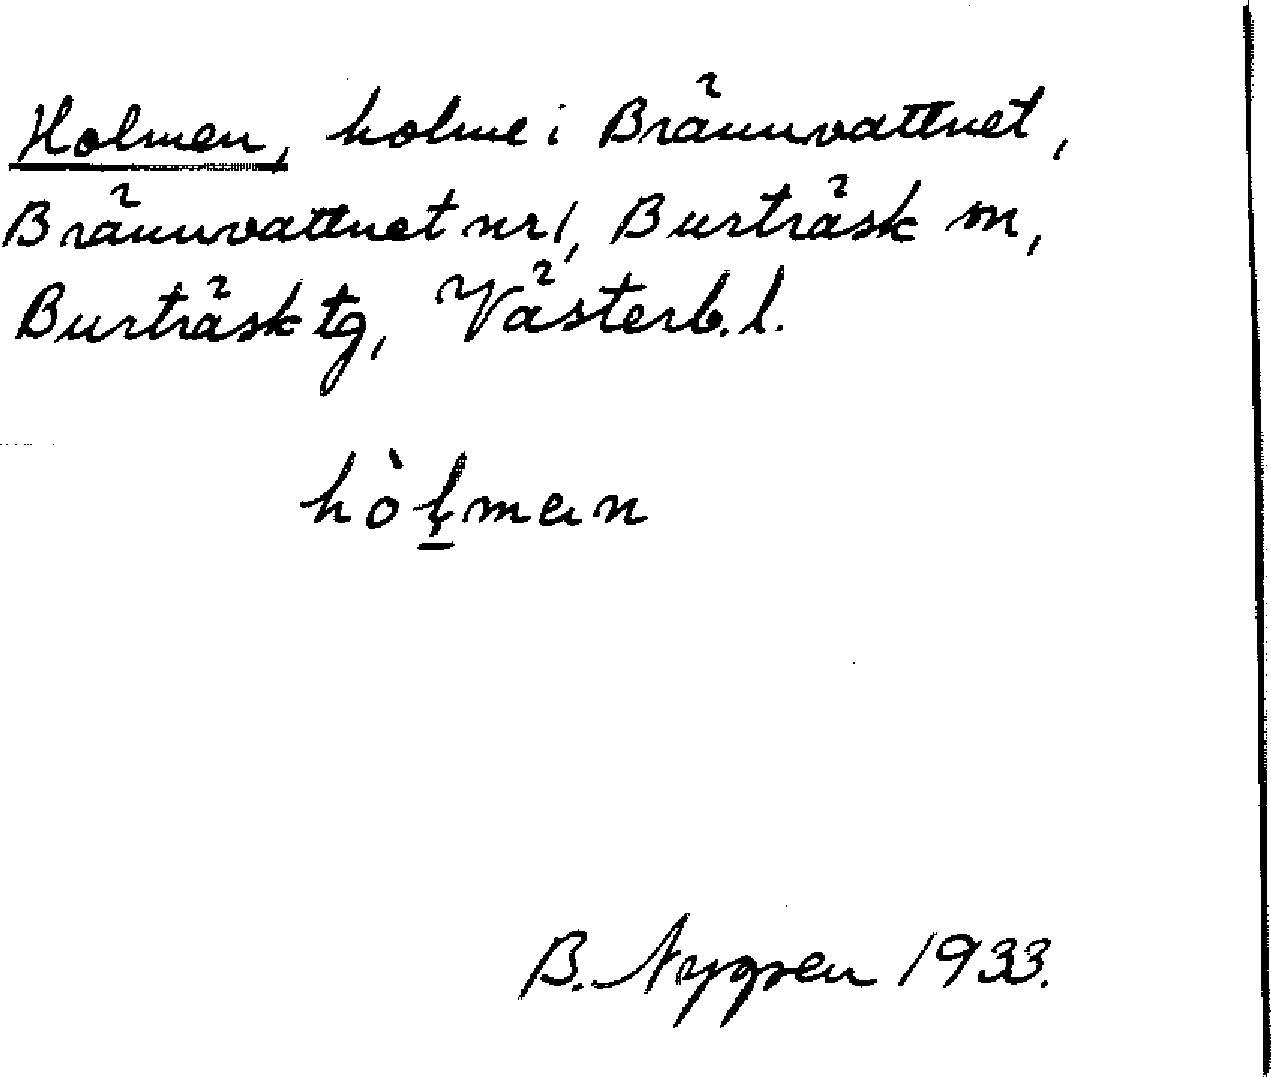 Holmen, holme i Brännvattnet,
Brännvattnet nr 1, Burträsk sn,
Burträsk tg, Västerb. l.
hòḷman
B. Nygren 1933.